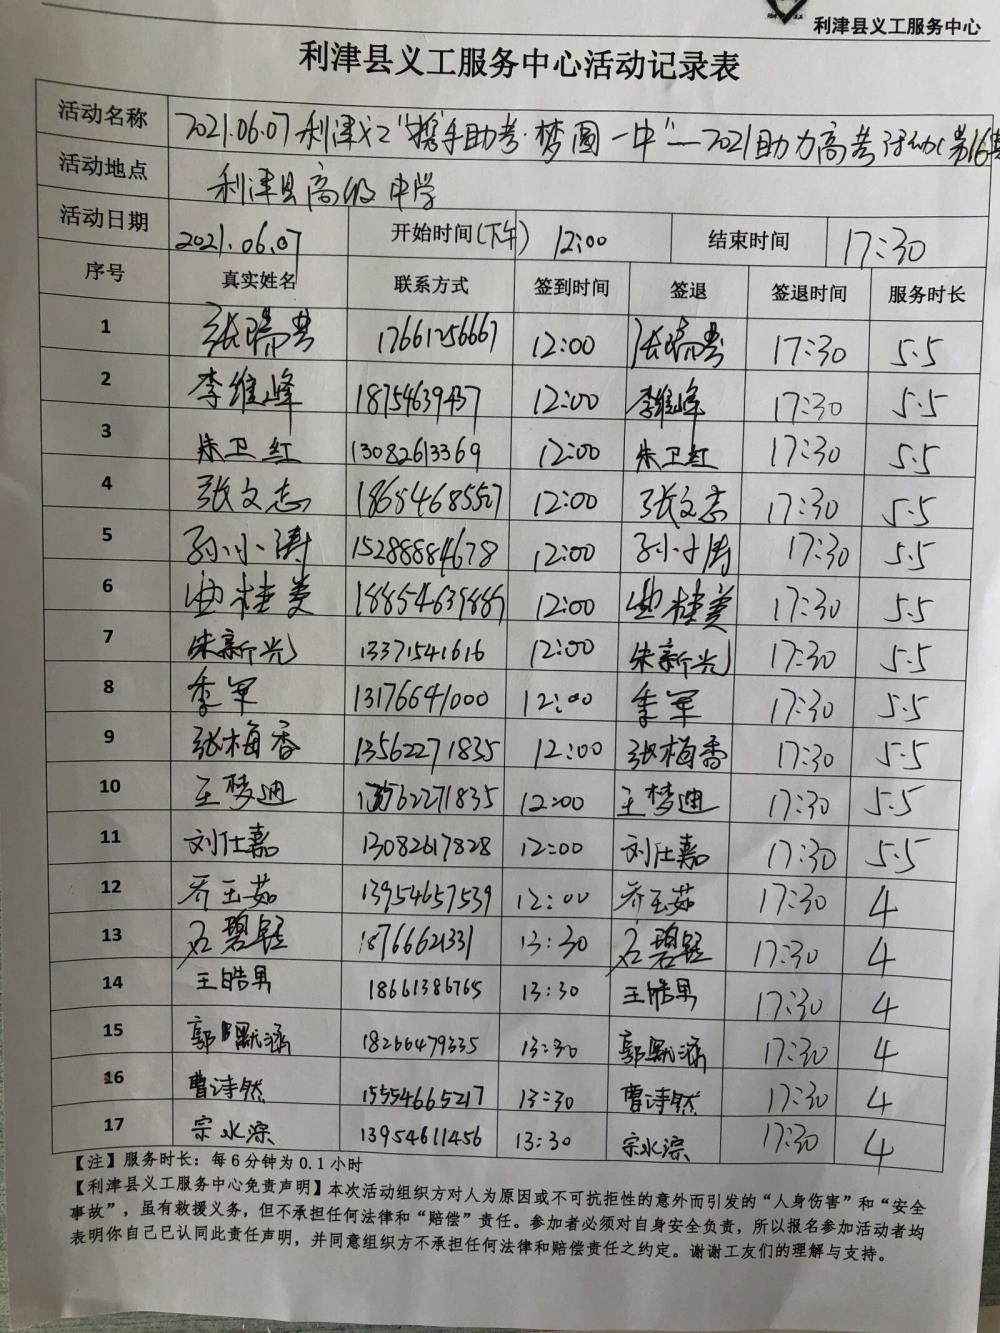 利津县义工服务中心
利津县义工服务中心活动记录表
活动名称 2021.06.07利津义工"携手助考·梦圆一中"—2021助力高考活动(第16期
活动地点 利津县高级中学
活动日期 2021.06.07 开始时间(下午) 12:00 结束时间 17:30
序号 真实姓名 联系方式 签到时间 签退 签退时间 服务时长
1 张瑞芸 17661256667 12:00 张瑞芸 17:30 5.5
2 李维峰 18754639437 12:00 李维峰 17:30 5.5
3 朱卫红 13082613369 12:00 朱卫红 17:30 5.5
4 张文志 18654685527 12:00 张文志 17:30 5.5
5 孙小涛 15288884678 12:00 孙小涛 17:30 5.5
6 曲桂美 18854639889 12:00 曲桂美 17:30 5.5
7 朱新光 13371541616 12:00 朱新光 17:30 5.5
8 季军 13176641000 12:00 季军 17:30 5.5
9 张梅香 13562271835 12:00 张梅香 17:30 5.5
10 王梦迪 13562271835 12:00 王梦迪 17:30 5.5
11 刘仕嘉 13082617828 12:00 刘仕嘉 17:30 5.5
12 乔玉茹 13954657539 12:00 乔玉茹 17:30 4
13 石碧钰 18766621331 13:30 石碧钰 17:30 4
14 王皓男 18661386765 13:30 王皓男 17:30 4
15 郭默涵 18266479335 13:30 郭默涵 17:30 4
16 曹诗然 15554665217 13:30 曹诗然 17:30 4
17 宗水淙 13954611456 13:30 宗水淙 17:30 4
【注】服务时长：每6分钟为0.1小时
【利津县义工服务中心免责声明】本次活动组织方对人为原因或不可抗拒性的意外而引发的“人身伤害”和“安全
事故”，虽有救援义务，但不承担任何法律和“赔偿”责任。参加者必须对自身安全负责，所以报名参加活动者均
表明你自己已认同此责任声明，并同意组织方不承担任何法律和赔偿责任之约定。谢谢工友们的理解与支持。